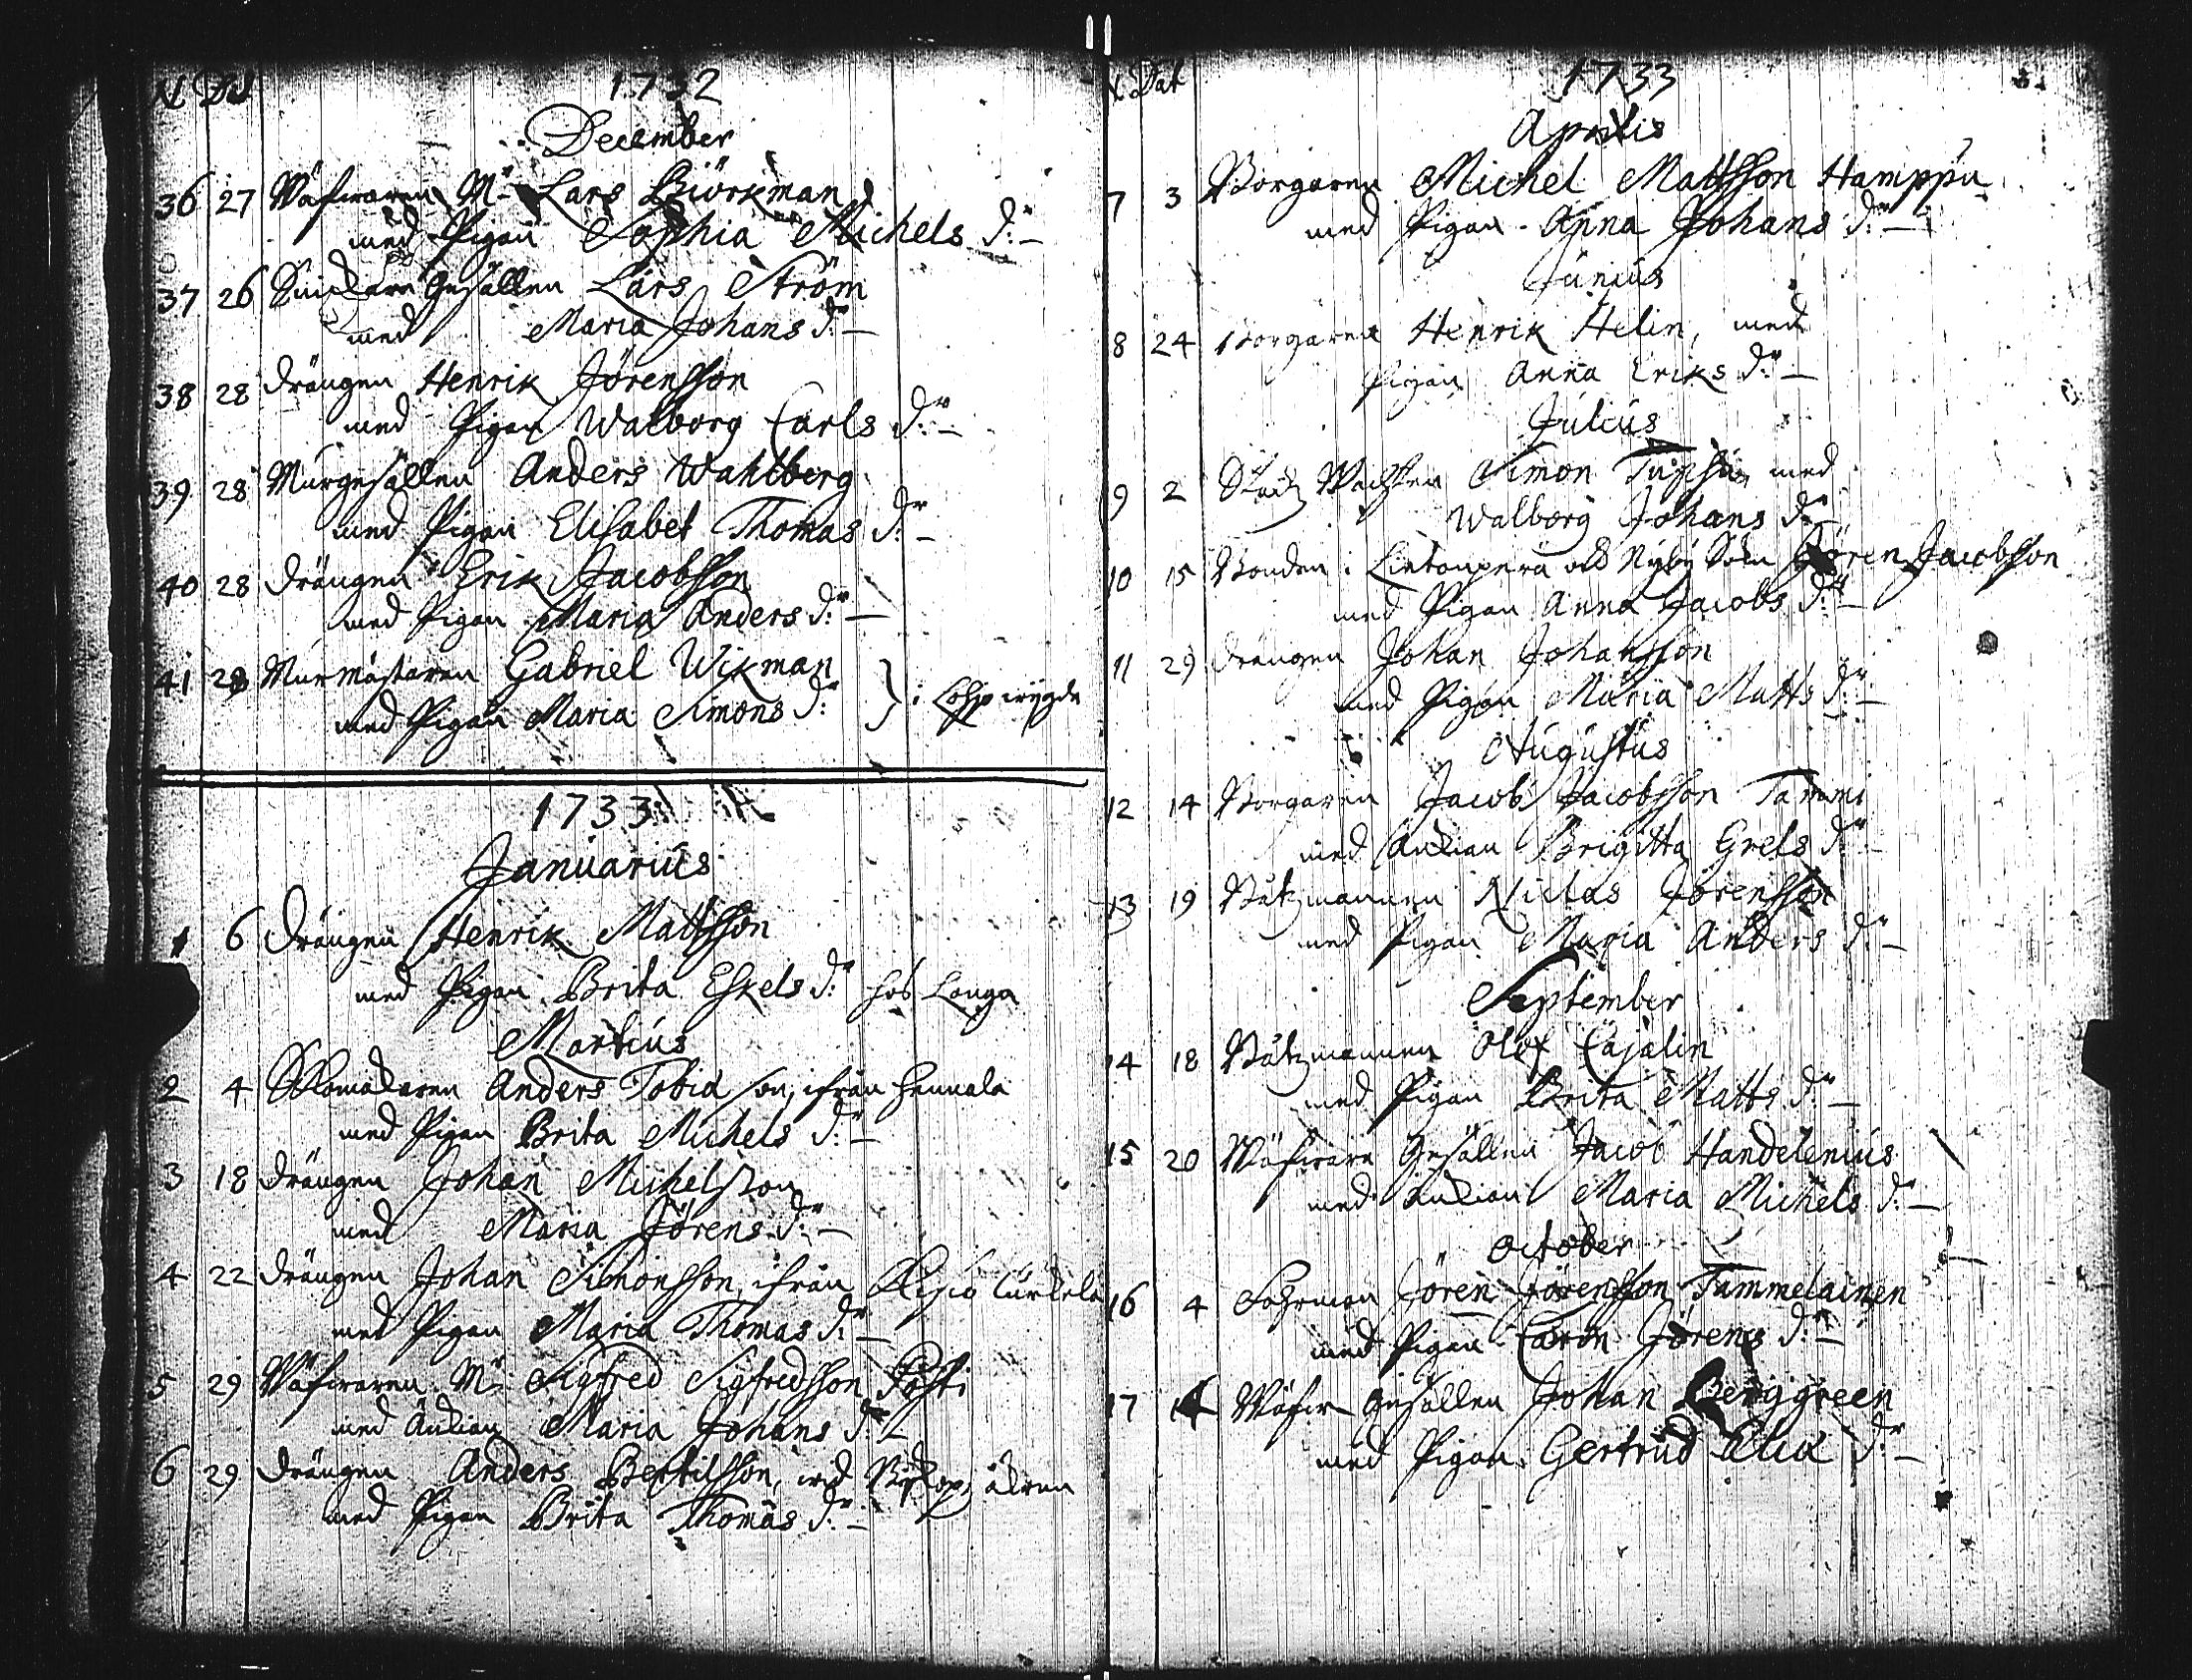 N Dat 1732
December
36 27 Wäfwaren Mr Lars Biörkman
med Pigan Sophia Michels dr
37 26 Snickare Gesällen Lars Ström
med Maria Johans dr
38 28 Drängen Henrik Jörensson
med Pigan Walborg Carls dr
39 28 Murgesällen Anders Wahlberg
med Pigan Elisabet Thomas dr
40 28 Drängen Erik Jacobsson
med Pigan Maria Anders dr
41 28 Murmästaren Gabriel Wikman
med Pigan Maria Simons dr i Lohjo wigde
1733
Januarius
1 6 Drängen Henrik Mattsson
med Pigan Brita Eskels dr hos Langa
Martius
2 4 Skomakaren Anders Tobiæ son, ifrån Hennala
med Pigan Brita Michels dr
3 18 Drängen Johan Michelsson
med Maria Jörens dr
4 22 Drängen Johan Simonsson, ifrån
med Pigan Maria Thomas dr
5 29 Wäfwaren Mr Sigfred Sigfredsson
med Änkian Maria Johans dr
6 29 Drängen Anders Bertilsson, wid Biskops åkren
med Pigan Brita Thomas dr
N Dat 1733
Aprilis
7 3 Borgaren Michel Mattsson Hamppu
med Pigan Anna Johans dr
Junius
8 24 Borgaren Henrik Helin, med
Pigan Anna Eriks dr
Julius
9 2 Stads Wachten Simon med
Walborg Johans dr
10 15 Bonden i och Nyby Sokn Jören Jacobsson
med Pigan Anna Jacobs dr
11 29 Drängen Johan Johansson
med Pigan Maria Matts dr
Augustus
12 14 Borgaren Jacob Jacobsson Tammi
med Änkian Brigitta Grels dr
13 19 Båtzmannen Niclas Jörensson
med Pigan Maria Anders dr
September
14 18 Båtzmannen Olof Cajalin
med Pigan Brita Matts dr
15 20 Wäfware Gesällen Jacob Handelenius
med Änkian Maria Michels dr
October
16 4 Jören Jörensson Tammelainen
med Pigan Carin Jörens dr
17 Wäfw Gesällen Johan Berggreen
med Pigan Gertrud Eliæ dr